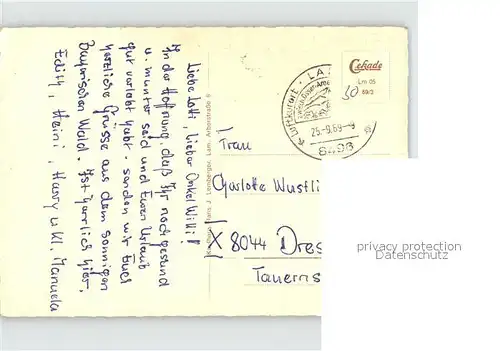 Liebe Lotti, lieber Onkel Willi!
In der Hoffnung, daß Ihr noch gesund
u. munter seid und Euren Urlaub
gut verlebt habt - senden wir Euch
herzliche Grüsse aus dem sonnigen
Bayerischen Wald. Ist herrlich hier,
Edith, Heini, Harry u kl. Manuela
J. Lemberger, Lam, Arberstraße
LAM
Luftkurort
25.-9.69-9
8496
Cekade
Lm 05
69/2
30
Frau
Charlotte Wustli
X 8044 Dres
Tauerns
privacy protection
Datenschutz